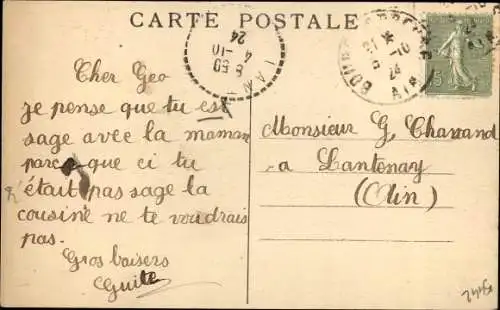 CARTE POSTALE
Cher Geo
je pense que tu est
sage avec la maman
parce que ci tu
était pas sage la
cousine ne te voudrais
pas.
Gros baisers
Guite
Monsieur G. Chavand
a Lantenay
(Ain)
8 50
4 -10
24
21 *
6 -10
24
AIN
15